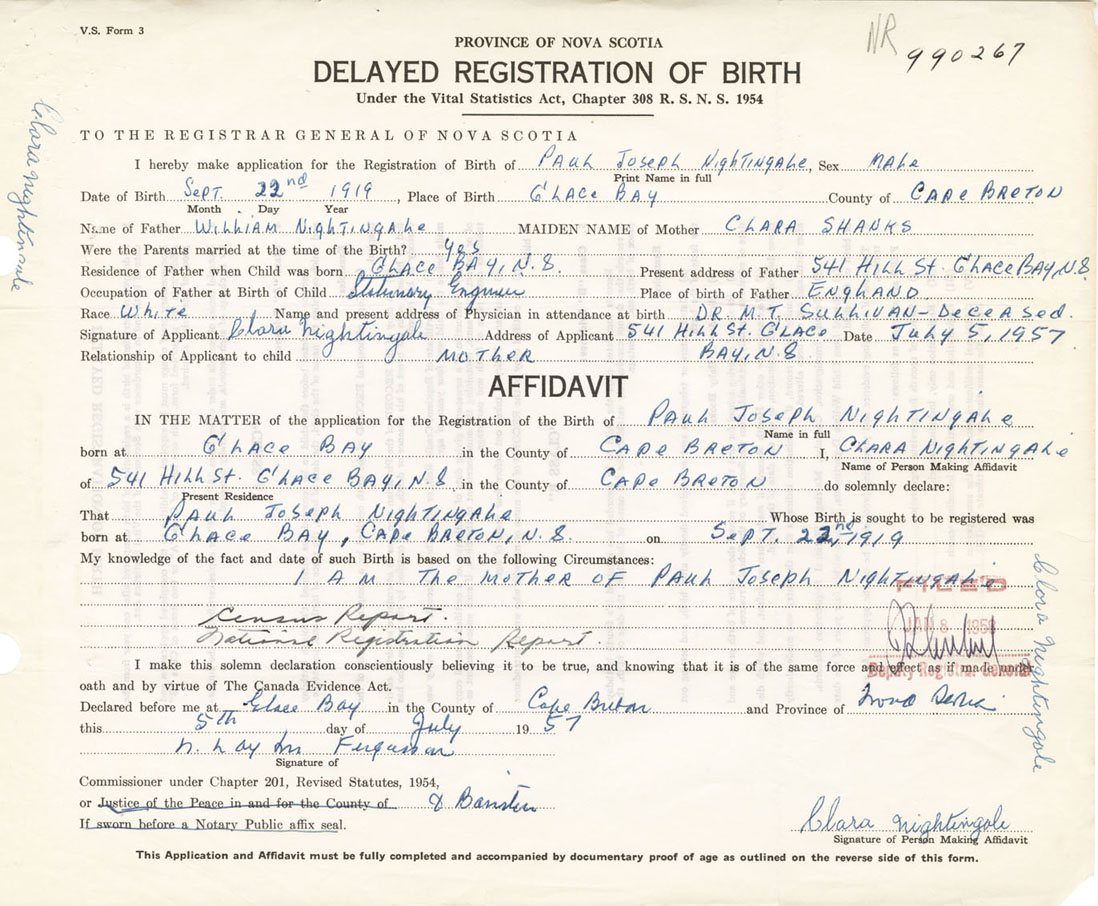 V.S. Form 3
NR 990267
PROVINCE OF NOVA SCOTIA
DELAYED REGISTRATION OF BIRTH
Under the Vital Statistics Act, Chapter 308 R. S. N. S. 1954
TO THE REGISTRAR GENERAL OF NOVA SCOTIA
I hereby make application for the Registration of Birth of Paul Joseph Nightingale, Sex Male
Print Name in full
Date of Birth Sept. 22nd 1919, Place of Birth Glace Bay County of Cape Breton
Month Day Year
Name of Father William Nightingale MAIDEN NAME of Mother Clara Shanks
Were the Parents married at the time of the Birth? Yes
Residence of Father when Child was born Glace Bay, N.S. Present address of Father 541 Hill St. Glace Bay N.S.
Occupation of Father at Birth of Child Stationary Engineer Place of birth of Father England
Race White Name and present address of Physician in attendance at birth Dr. M.T. Sullivan - Deceased.
Signature of Applicant Clara Nightingale Address of Applicant 541 Hill St. Glace Date July 5, 1957
Relationship of Applicant to child Mother Bay, N.S.
AFFIDAVIT
IN THE MATTER of the application for the Registration of the Birth of Paul Joseph Nightingale
Name in full
born at Glace Bay in the County of Cape Breton I, Clara Nightingale
Name of Person Making Affidavit
of 541 Hill St. Glace Bay, N.S. in the County of Cape Breton do solemnly declare:
Present Residence
That Paul Joseph Nightingale Whose Birth is sought to be registered was
born at Glace Bay, Cape Breton, N.S. on Sept. 22nd, 1919
My knowledge of the fact and date of such Birth is based on the following Circumstances:
I Am The Mother of Paul Joseph Nightingale
FILED
Census Report.
National Registration Report.
JAN 8 1958
I make this solemn declaration conscientiously believing it to be true, and knowing that it is of the same force and effect as if made under
Deputy Registrar General
oath and by virtue of The Canada Evidence Act.
Declared before me at Glace Bay in the County of Cape Breton and Province of Nova Scotia
this 5th day of July 1957
Fergusson
Signature of
Commissioner under Chapter 201, Revised Statutes, 1954,
or Justice of the Peace in and for the County of
If sworn before a Notary Public affix seal.
Clara Nightingale
Signature of Person Making Affidavit
This Application and Affidavit must be fully completed and accompanied by documentary proof of age as outlined on the reverse side of this form.
Clara Nightingale
Clara Nightingale